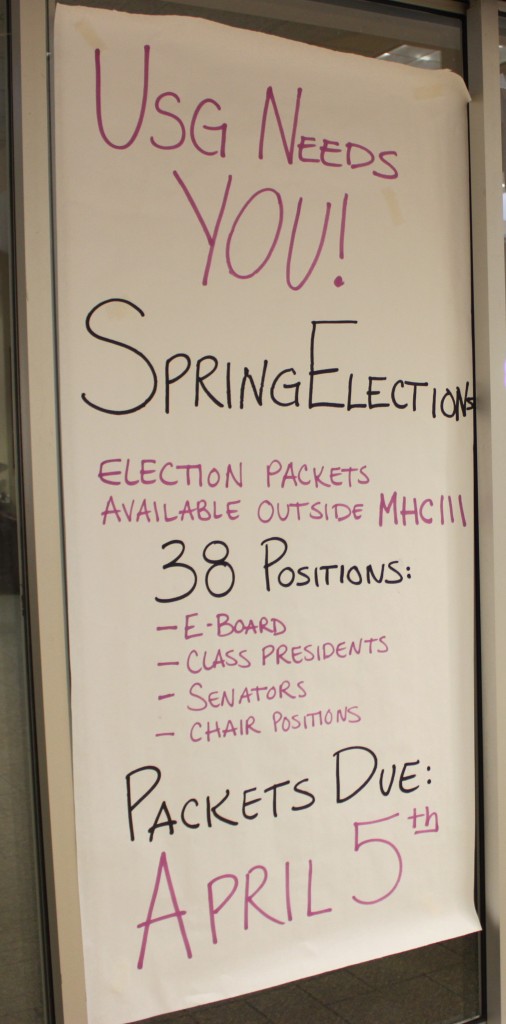 USG NEEDS
YOU!
SPRING ELECTIONS
ELECTION PACKETS
AVAILABLE OUTSIDE MHC111
38 POSITIONS:
- E-BOARD
- CLASS PRESIDENTS
- SENATORS
- CHAIR POSITIONS
PACKETS DUE:
APRIL 5th